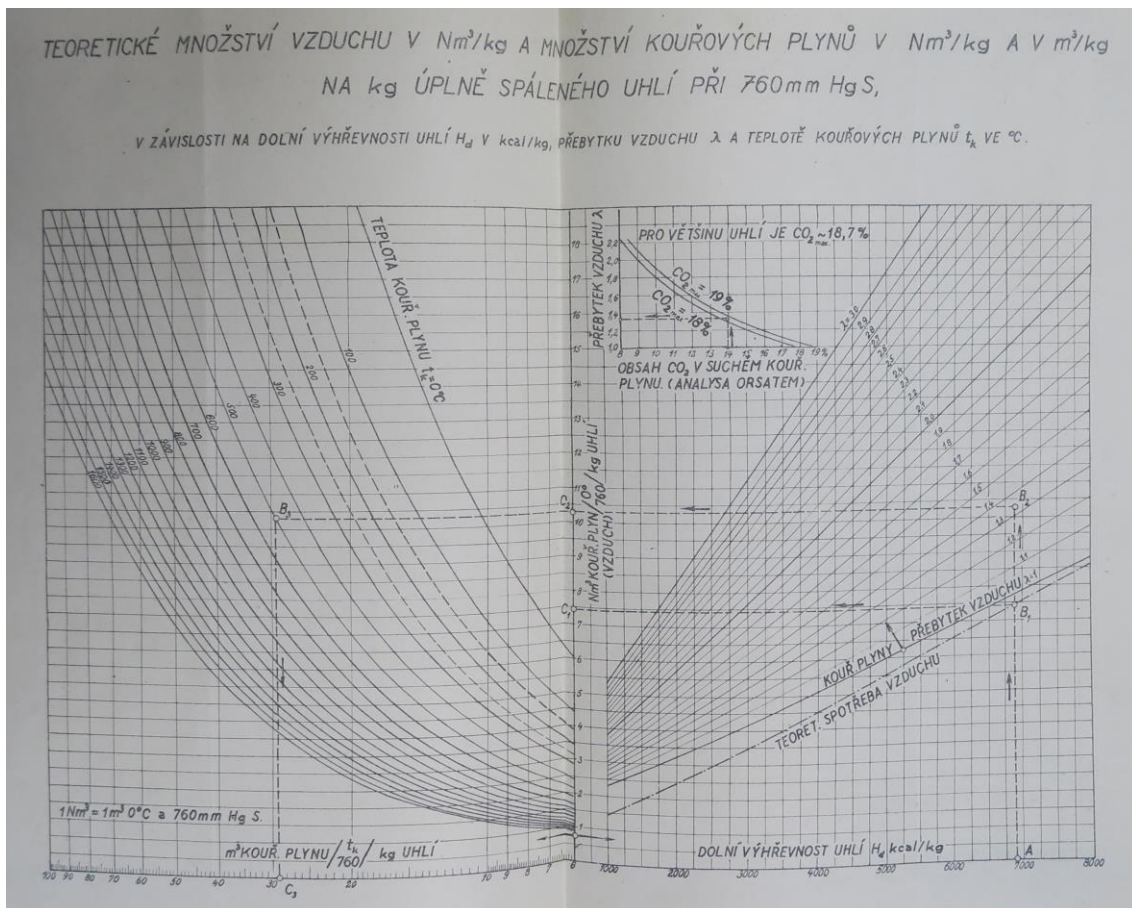 TEORETICKÉ MNOŽSTVÍ VZDUCHU V Nm³/kg A MNOŽSTVÍ KOUŘOVÝCH PLYNŮ V Nm³/kg A V m³/kg
NA kg ÚPLNĚ SPÁLENÉHO UHLÍ PŘI 760mm HgS,
V ZÁVISLOSTI NA DOLNÍ VÝHŘEVNOSTI UHLÍ Hd V kcal/kg, PŘEBYTKU VZDUCHU λ A TEPLOTĚ KOUŘOVÝCH PLYNŮ tk VE °C.
TEPLOTA KOUŘ. PLYNU tk=0°C
100
200
300
400
500
600
700
800
900
1000
1100
1200
1300
B3
1Nm³=1m³ 0°C a 760mm Hg S.
m³ KOUŘ. PLYNU/ tk/760 / kg UHLÍ
100 90 80 70 60 50 40 30 20 10 9 8 7 6
C3
PŘEBYTEK VZDUCHU λ
2,2
2,0
1,8
1,6
1,4
1,2
1,0
PRO VĚTŠINU UHLÍ JE CO2 max ~18,7%
CO2 max = 19%
CO2 max = 18%
8 9 10 11 12 13 14 15 16 17 18 19%
OBSAH CO2 V SUCHÉM KOUŘ.
PLYNU. (ANALYSA ORSATEM)
Nm³ KOUŘ. PLYN/ 0°/760 /kg UHLÍ
(VZDUCH)
18
17
16
15
14
13
12
11
10
9
8
7
6
5
4
3
2
1
C2
C1
λ=3,0
2,9
2,8
2,7
2,6
2,5
2,4
2,3
2,2
2,1
2,0
1,9
1,8
1,7
1,6
1,5
1,4
1,3
1,2
1,1
B2
B1
KOUŘ. PLYNY PŘEBYTEK VZDUCHU λ=1
TEORET. SPOTŘEBA VZDUCHU
DOLNÍ VÝHŘEVNOST UHLÍ Hd kcal/kg
A
1000 2000 3000 4000 5000 6000 7000 8000